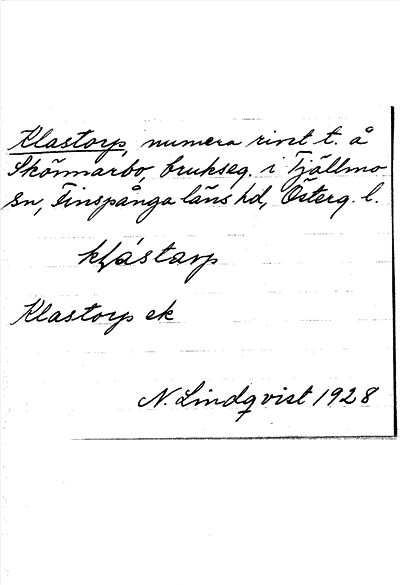 Klastorp, numera rivet t. å
Skönnarbo, brukseg. i Tjällmo
sn, Finspånga läns hd, Österg. l.
Klastorp ek
N. Lindqvist 1928